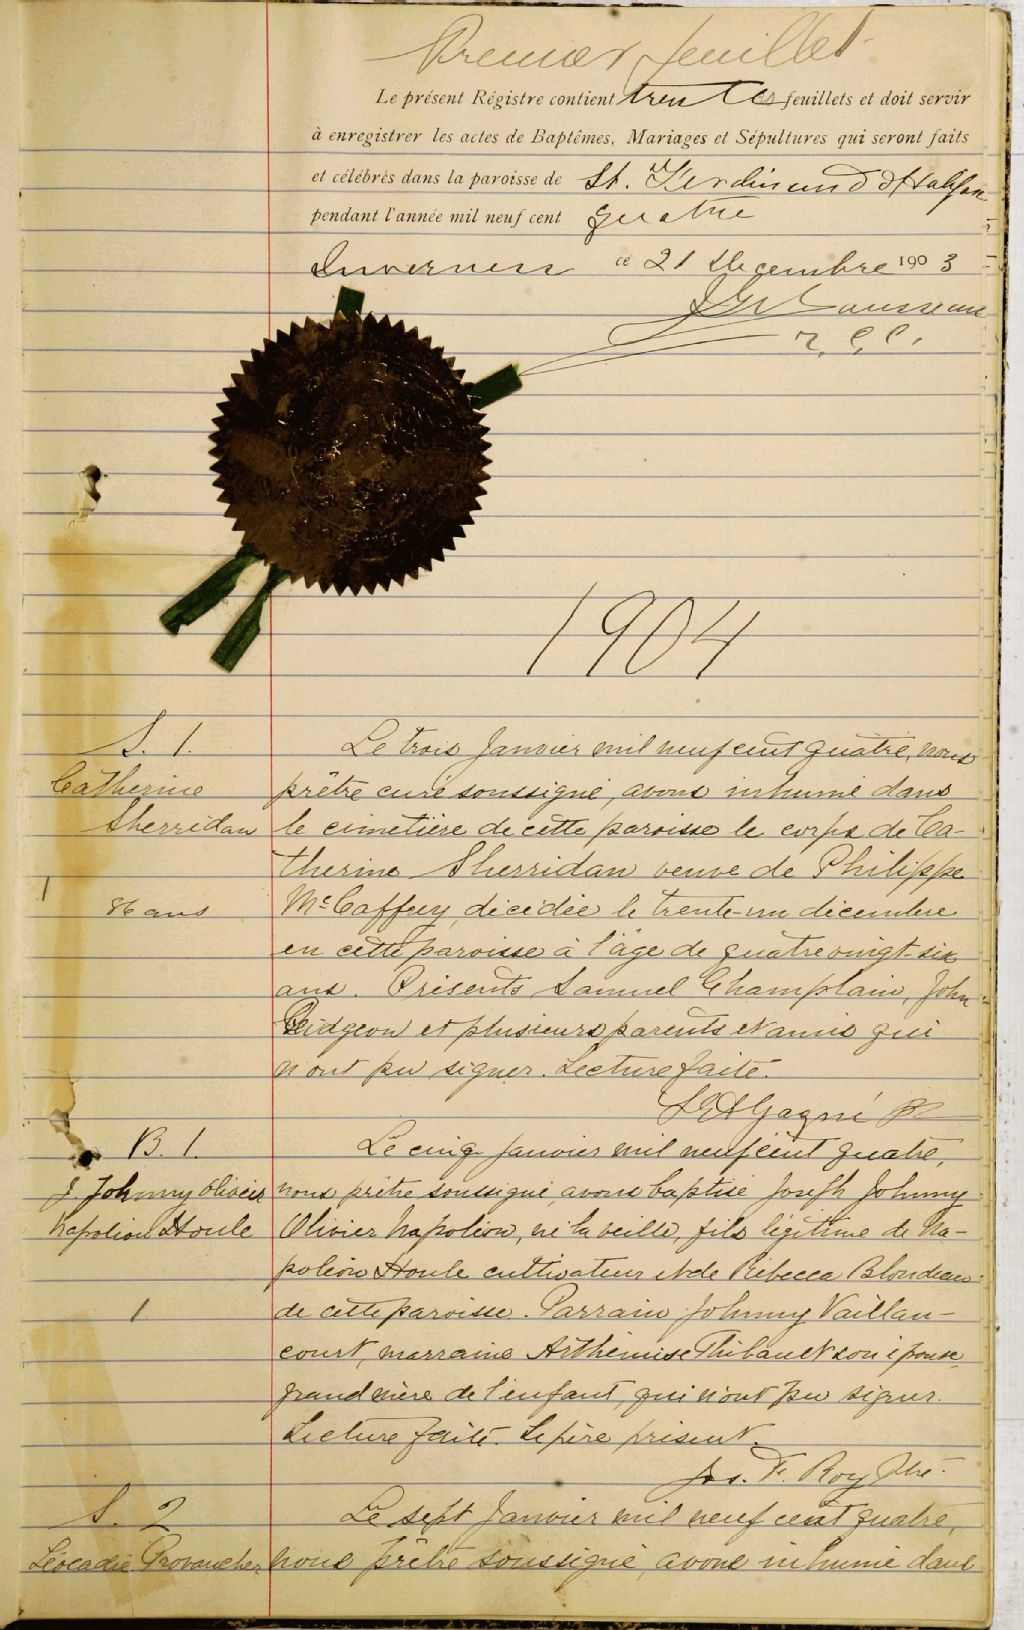 Premier feuillet
Le présent Régistre contient trente feuillets et doit servir
à enregistrer les actes de Baptêmes, Mariages et Sépultures qui seront faits
et célébrés dans la paroisse de St. Ferdinand d'Halifax
pendant l'année mil neuf cent quatre
Inverness ce 21 Decembre 1903
1904
S. 1.
Le trois Janvier mil neuf cent quatre, nous
Catherine
prêtre curé soussigné, avons inhumé dans
Sherridan
le cimetière de cette paroisse le corps de Ca-
therine Sherridan veuve de Philippe
1
86 ans
McCaffrey, décédée le trente-un décembre
en cette paroisse à l'âge de quatre vingt-six
ans. Présents Samuel Champlain, John
Pridgeon et plusieurs parents et amis qui
n'ont pu signer. Lecture faite.
Gagné
B. 1.
Le cinq Janvier mil neuf cent quatre,
J. Johnny Olivier
nous prêtre soussigné, avons baptisé Joseph Johnny
Napoléon Houle
Olivier Napoléon, né la veille, fils légitime de Na-
poléon Houle cultivateur et de Rébecca Blondeau
1
de cette paroisse. Parrain Johnny Vaillan-
court, marraine Arthémise Thibault son épouse,
grand'mère de l'enfant, qui n'ont pu signer.
Lecture faite. Le père présent.
Jos. F. Roy Ptre.
S. 2
Le sept Janvier mil neuf cent quatre,
Léocadie Provancher
nous prêtre soussigné, avons inhumé dans